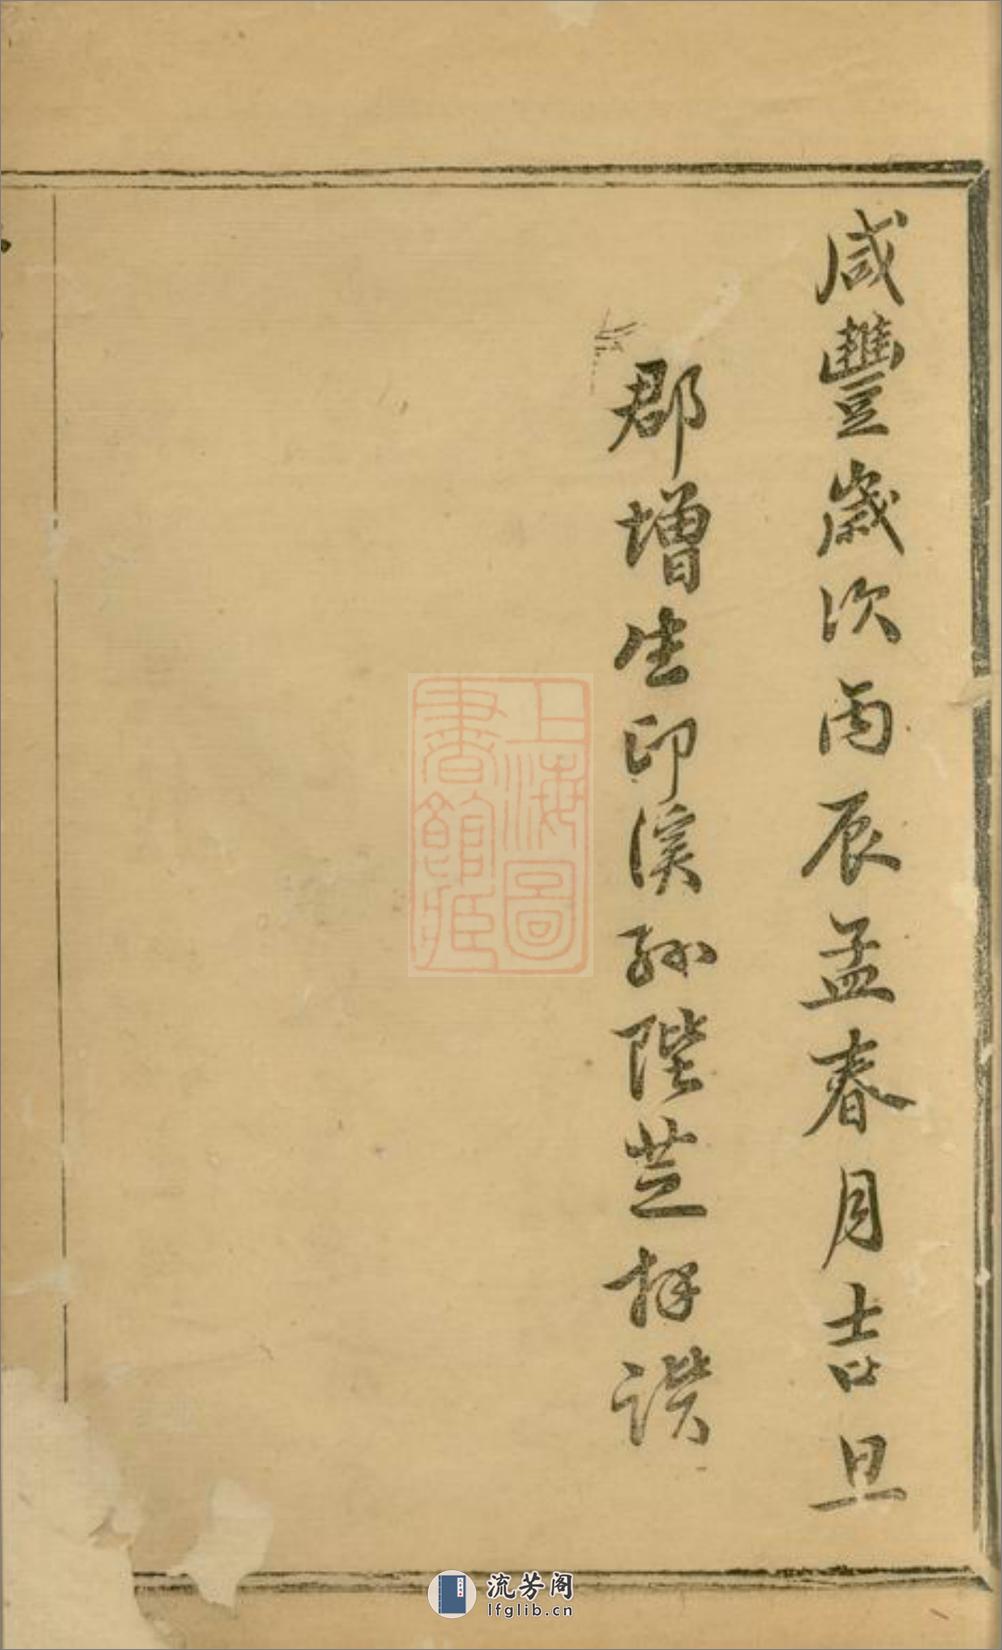 咸豐歲次丙辰孟春月吉旦
郡增生印溪孫陛芝拜譔
上海圖書館藏
流芳阁
lfglib.cn